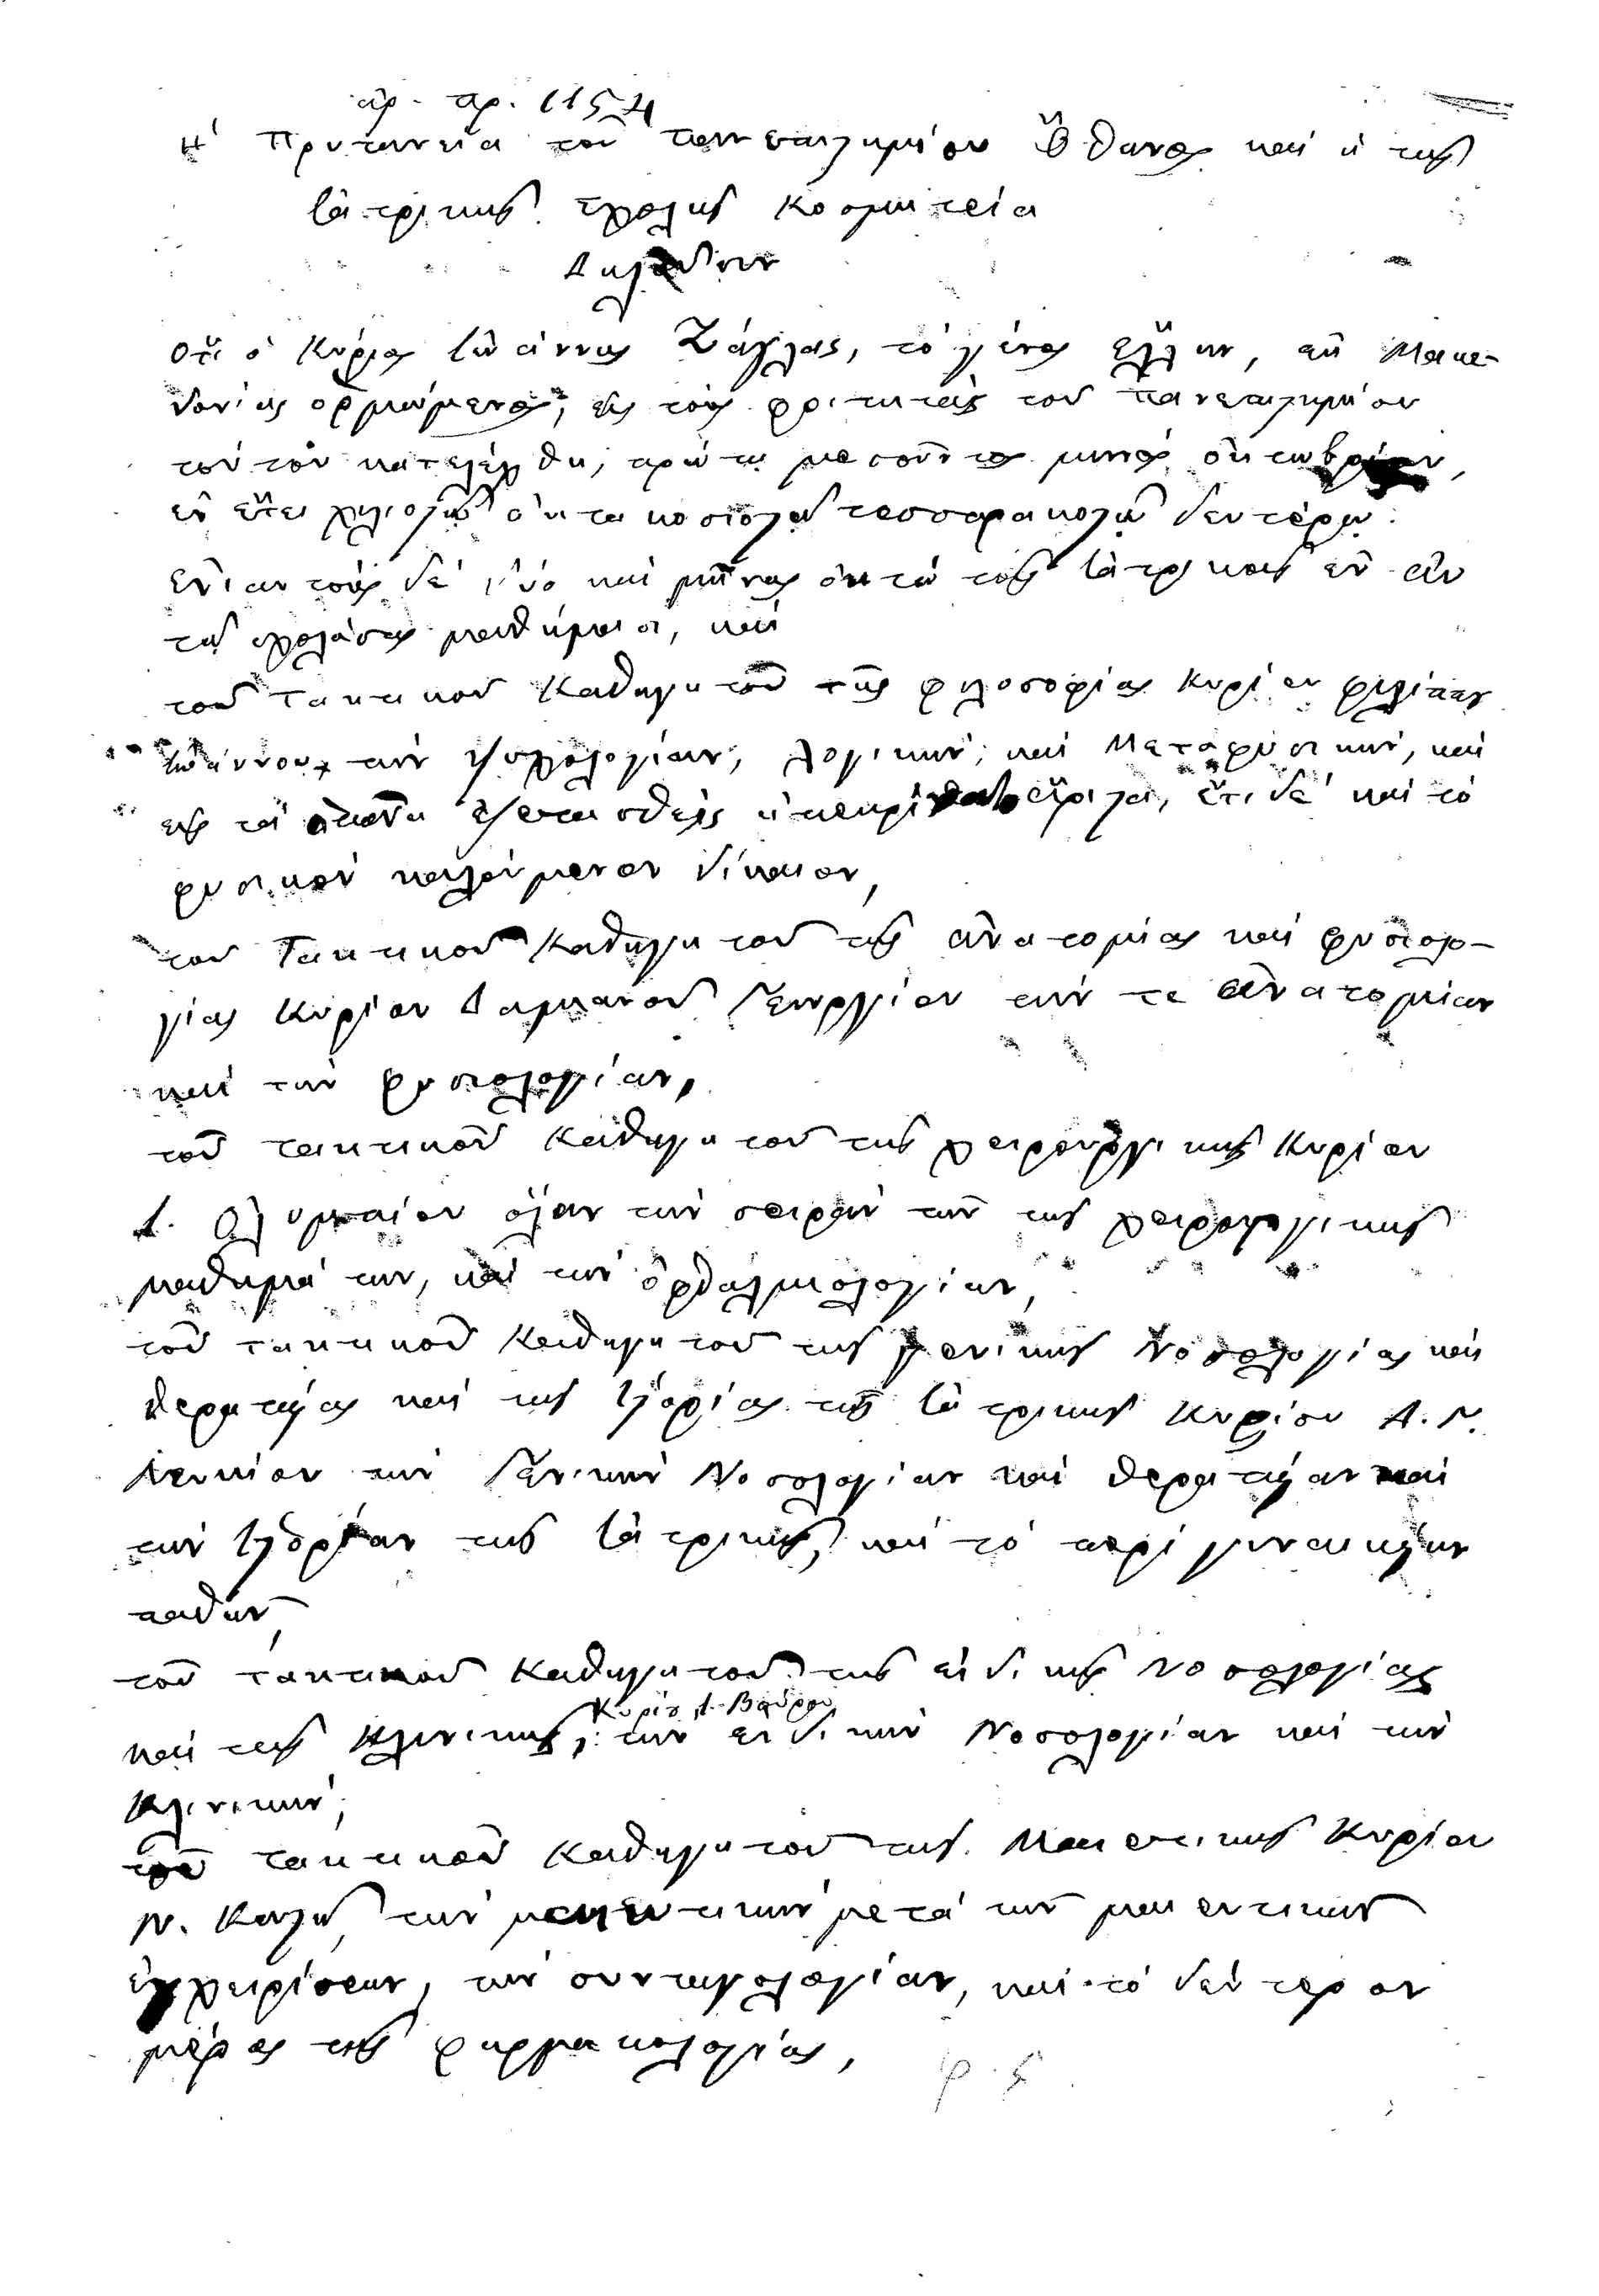 ἀρ. πρ. 1154
Ἡ Πρυτανεία τοῦ πανεπιστημίου Ὄθωνος καὶ ἡ τῆς
ἰατρικῆς σχολῆς Κοσμητεία
Δηλοῦσιν
Ὅτι ὁ Κύριος Ἰωάννης Ζάγλας, τὸ γένος ἕλλην, ἐκ Μακε-
δονίας ὁρμώμενος, εἰς τοὺς φοιτητὰς τοῦ πανεπιστημίου
τούτου κατελέχθη, πρώτῃ μεσοῦντος μηνὸς ὀκτωβρίου,
ἐν ἔτει χιλιοστῷ ὀκτακοσιοστῷ τεσσαρακοστῷ δευτέρῳ.
Ἐνιαυτοὺς δὲ δύο καὶ μῆνας ὀκτὼ τοῖς ἰατρικοῖς ἐν αὐ
τῷ σχολάσας μαθήμασι, καὶ
τοῦ Τακτικοῦ Καθηγητοῦ τῆς φιλοσοφίας Κυρίου φιλίππου
Ἰωάννου, τὴν ψυχολογίαν, λογικὴν, καὶ Μεταφυσικὴν, καὶ
εἰς τὰ ἐξετασθεὶς ἄριστα, ἔτι δὲ καὶ τὸ
φυσικὸν καλούμενον δίκαιον,
τοῦ Τακτικοῦ Καθηγητοῦ τῆς ἀνατομίας καὶ φυσιολο-
γίας Κυρίου Δαμιανοῦ Γεωργίου τήν τε ἀνατομίαν
καὶ τὴν φυσιολογίαν,
τοῦ τακτικοῦ Καθηγητοῦ τῆς χειρουργικῆς Κυρίου
Ι. Ὀλυμπίου ὅλην τὴν σειρὰν τῶν τῆς χειρουργικῆς
μαθημάτων, καὶ τὴν ὀφθαλμολογίαν,
τοῦ τακτικοῦ Καθηγητοῦ τῆς γενικῆς Νοσολογίας καὶ
θεραπείας καὶ τῆς ἱστορίας τῆς ἰατρικῆς Κυρίου Α. Γ.
Λευκίου τὴν Γενικὴν Νοσολογίαν καὶ θεραπείαν καὶ
τὴν ἱστορίαν τῆς ἰατρικῆς, καὶ τὸ περὶ γυναικείων
παθῶν,
τοῦ τακτικοῦ Καθηγητοῦ τῆς εἰδικῆς νοσολογίας
Κυρίου Ι. Βούρου
καὶ τῆς Κλινικῆς, τὴν εἰδικὴν Νοσολογίαν καὶ τὴν
Κλινικὴν,
τοῦ τακτικοῦ Καθηγητοῦ τῆς Μαιευτικῆς Κυρίου
Ν. Κωστῆ, τὴν μαιευτικὴν μετὰ τῶν μαιευτικῶν
ἐγχειρίσεων, τὴν συνταγολογίαν, καὶ τὸ δεύτερον
μέρος τῆς φαρμακολογίας,